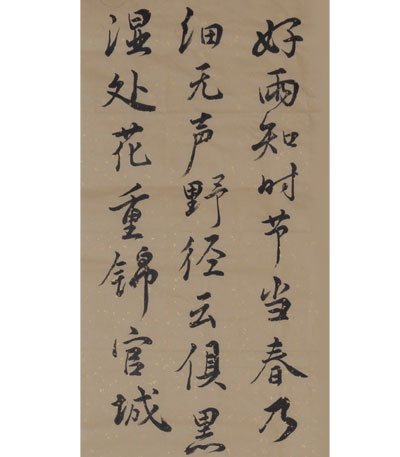 好雨知时节当春乃
细无声野径云俱黑
湿处花重锦官城